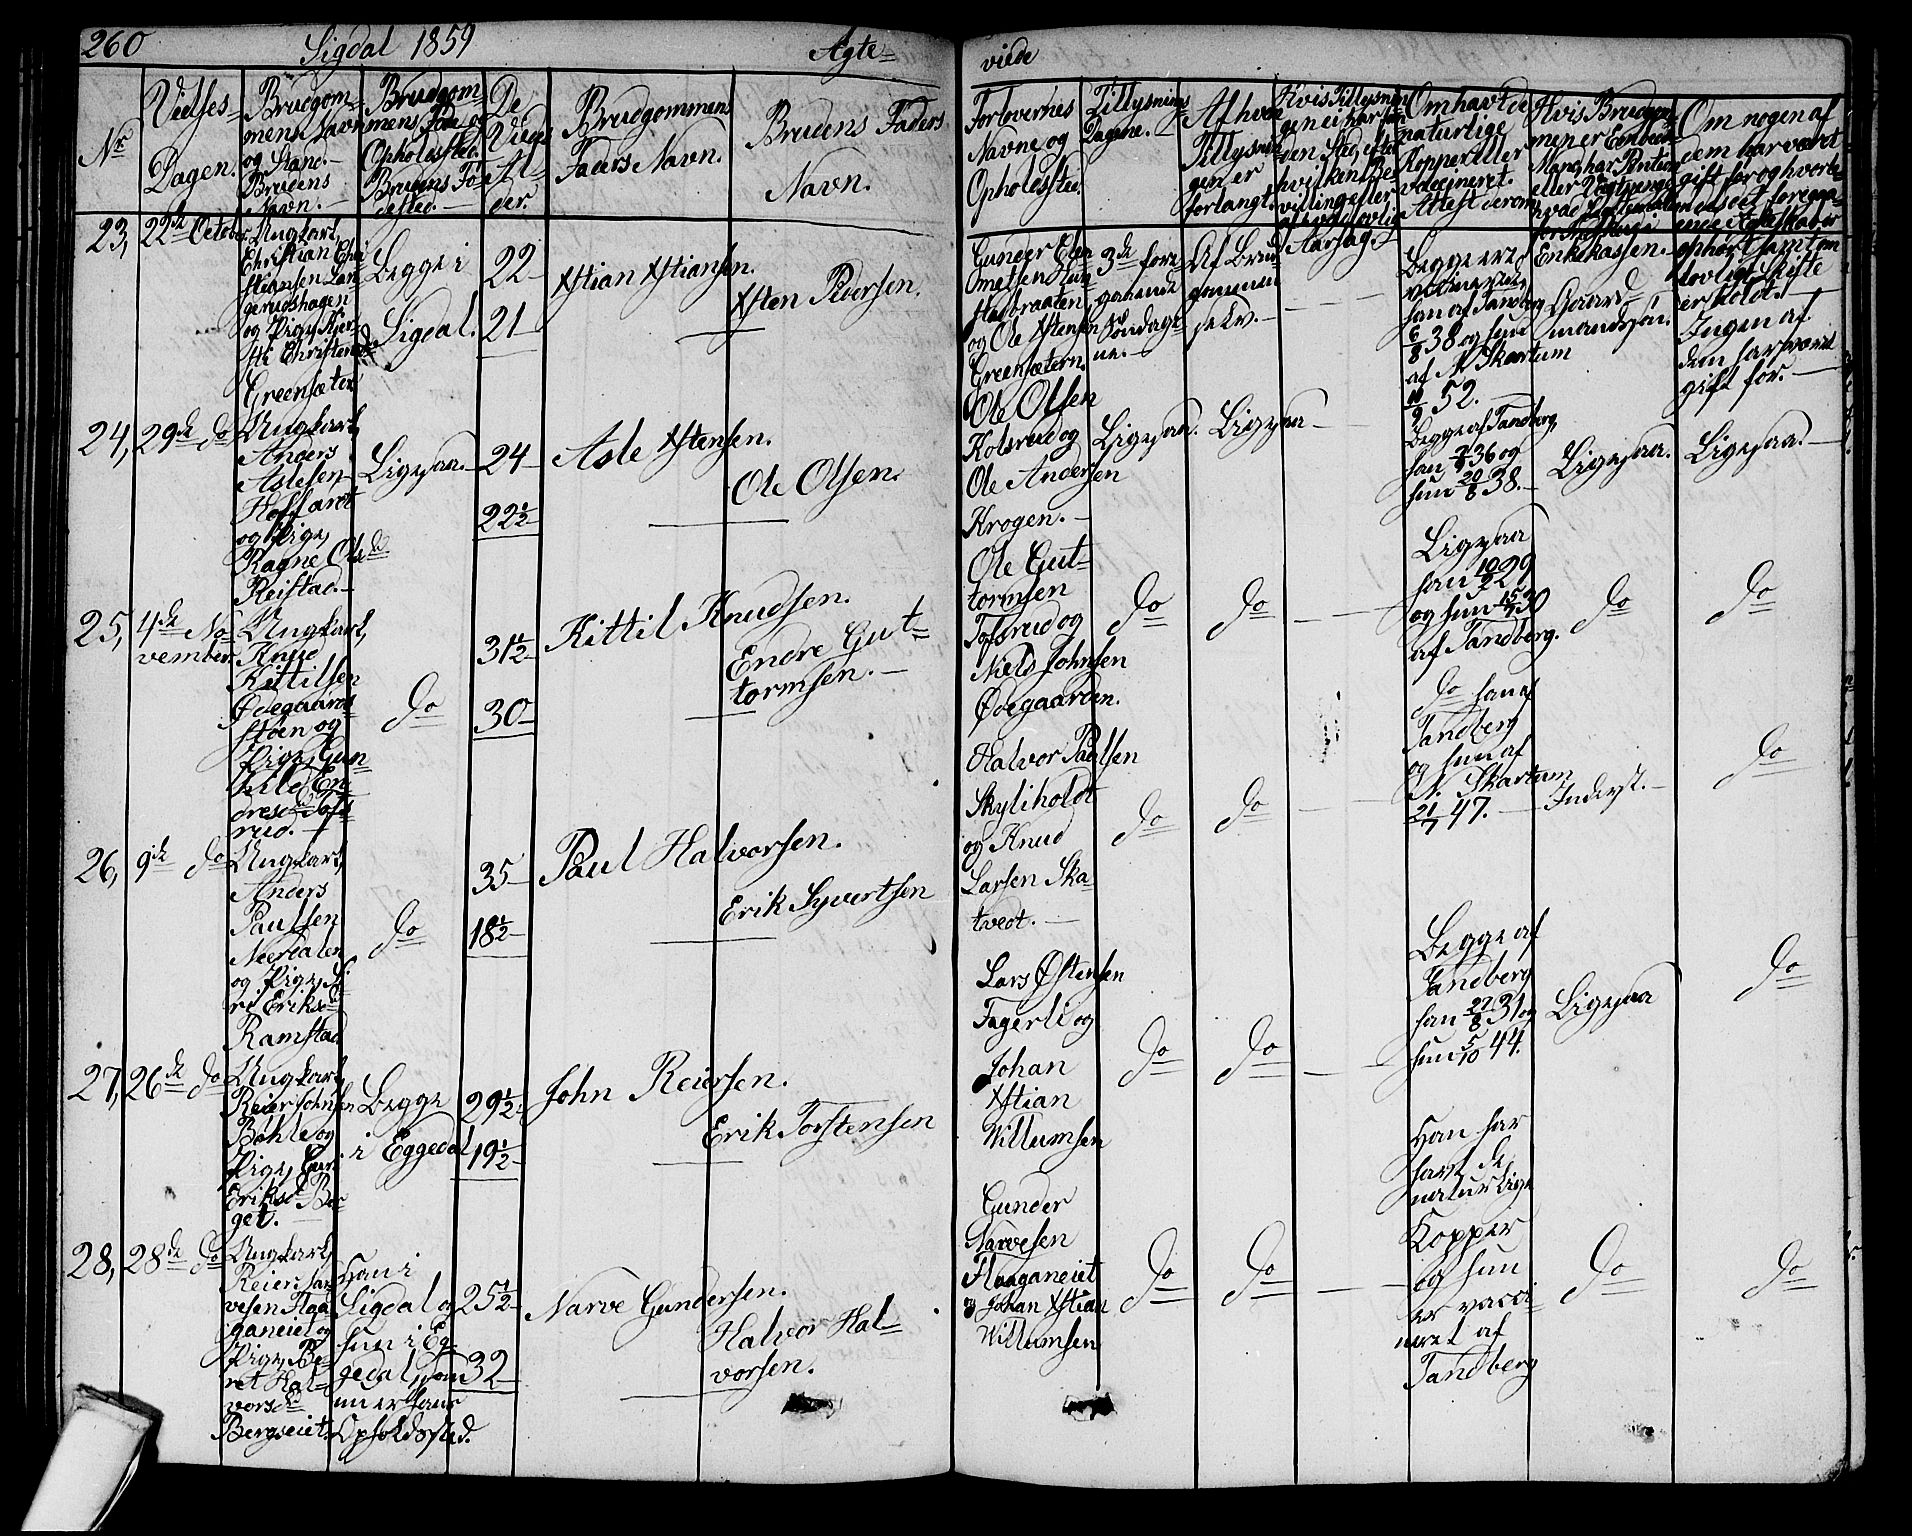 260 Sigdal 1859 Ægte= viede
Nr
Vielses-
Dagen.
Brudgom-
mens Navn
og Stand.-
Brudens
Navn.-
Brudgom
mensFøde og
Opholdssted.
Brudens Fø
dested.-
De
Viedes
Al-
der
Brudgommens
Faders Navn.
Brudens Faders
Navn.
Forlovernes
Navne og
Opholdssted
Tillysnings
Dagene.-
Af hvem
Tillysnin
gen er
forlangt.
Hvis Tillysnin
gen ei har fun
den Sted, efter
hvilken Be
villing eller
Aarsag.-
Om havt de
naturlige
Kopper eller
vaccineret.
Attest derom
Hvis Brudgom
men er Embeds
Mand, har Pention
Enkekassen.-
Om nogen af
dem har været
gift før og hvorle-
ophørt samt om
lovligt Skifte
er holdt.-
23, 22de October
Ungkarl,
Christian Chri
stiansen Lan
gerudshagen
og Pige Kjer
sti Christensd
Greensæter
Begge i
Sigdal.
22
21
Xstian Xstiansen.
Xsten Pedersen.
Gunder Elen
og Ole Xstensen
Greensætern.
3de fore
gaaende
Søndage
ne.-
Af Brud
gommen
selv.-
Begge ere
vaccinerede,
han af Tandberg
6/8 38 og hun
af N. Skartum
10/9 52.-
Gaard
mandssøn.
Ingen af
dem har været
gift før.-
24, 29de do
Ungkarl,
Anders
Aslesen
Hoffart
og Pige
Ragne Olsd
Reistad.-
Ligesaa.
24
22½
Asle Xstensen.
Ole Olsen.
Ole Olsen
Kolsrud og
Ole Andersen
Krogen.-
Ligesaa.
Ligesaa
Begge af Tandberg,
han 36 og
hun 20/8 38.-
Ligesaa.
Ligesaa.-
25, 4de No
vember.
Ungkarl,
Knud
Kittilsen
Ødegaards
støen og
Pige Gun
hild En
dresd Tofs
rud.-
do
31½
30
Kittil Knudsen.
Endre Gut=
tormsen.-
Ole Gut=
tormsen
Tofsrud og
Niels Johnsen
Ødegaarden.
do
do
Ligesaa
han 10/2 29
og hun 15/7 30
af Tandberg.
do
do
26, 9de do
Ungkarl,
Anders
Paulsen
Neerdalen
og Pige, Si
ri Eriksd
Ramstad
do
35
18½
Paul Halvorsen.
Erik Syvertsen
Halvor Paulsen
Skyliholdt
og Knud
Larsen Ska
tvedt.-
do
do
do han af
Tandberg
og hun af
N. Skartum
21/7 47.-
Inderst.-
do
27, 26de do
Ungkarl,
Reier Johnsen
Bøhle og
Pige, Guri
Eriksd Bor
get.
Begge
i Eggedal
29½
19½
John Reiersen.
Erik Torstensen
Lars Østensen
Fagerli og
Johan
Xstian
Willumsen
do
do
Begge af
Tandberg
han 27/8 31 og
hun 5/10 44.
Ligesaa
do
28, 28de do
Ungkarl,
Reier Nar
vesen Haa
ganeiet og
Pige, Be
ret Hal=
vorsd
Bergseiet.
Han i
Sigdal og
hun i Eg
gedal, som
nu er hans
Opholdssted.
25½
32
Narve Gundersen.
Halvor Hal=
vorsen.
Gunder
Narvesen
Haaganeiet
og Johan Xstian
Willumsen
do
do
Han har
havt de
naturlige
Kopper
og hun
er vacci-
neret af
Tandberg
do
do